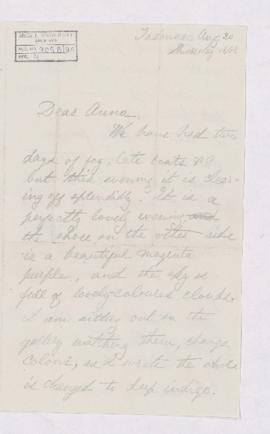 Tadousac Aug 20
Dear Anna.
We have had two
days of fog, late boats &c.
but this evening it is clear-
ing off splendidly. It is a
perfectly lovely evening and
the shore on the other side
is a beautiful magenta
purple, and the sky is
full of lovely-coloured clouds.
I am sitting out on the
gallery watching them change
colour, as I write the shore
is changed to deep indigo.